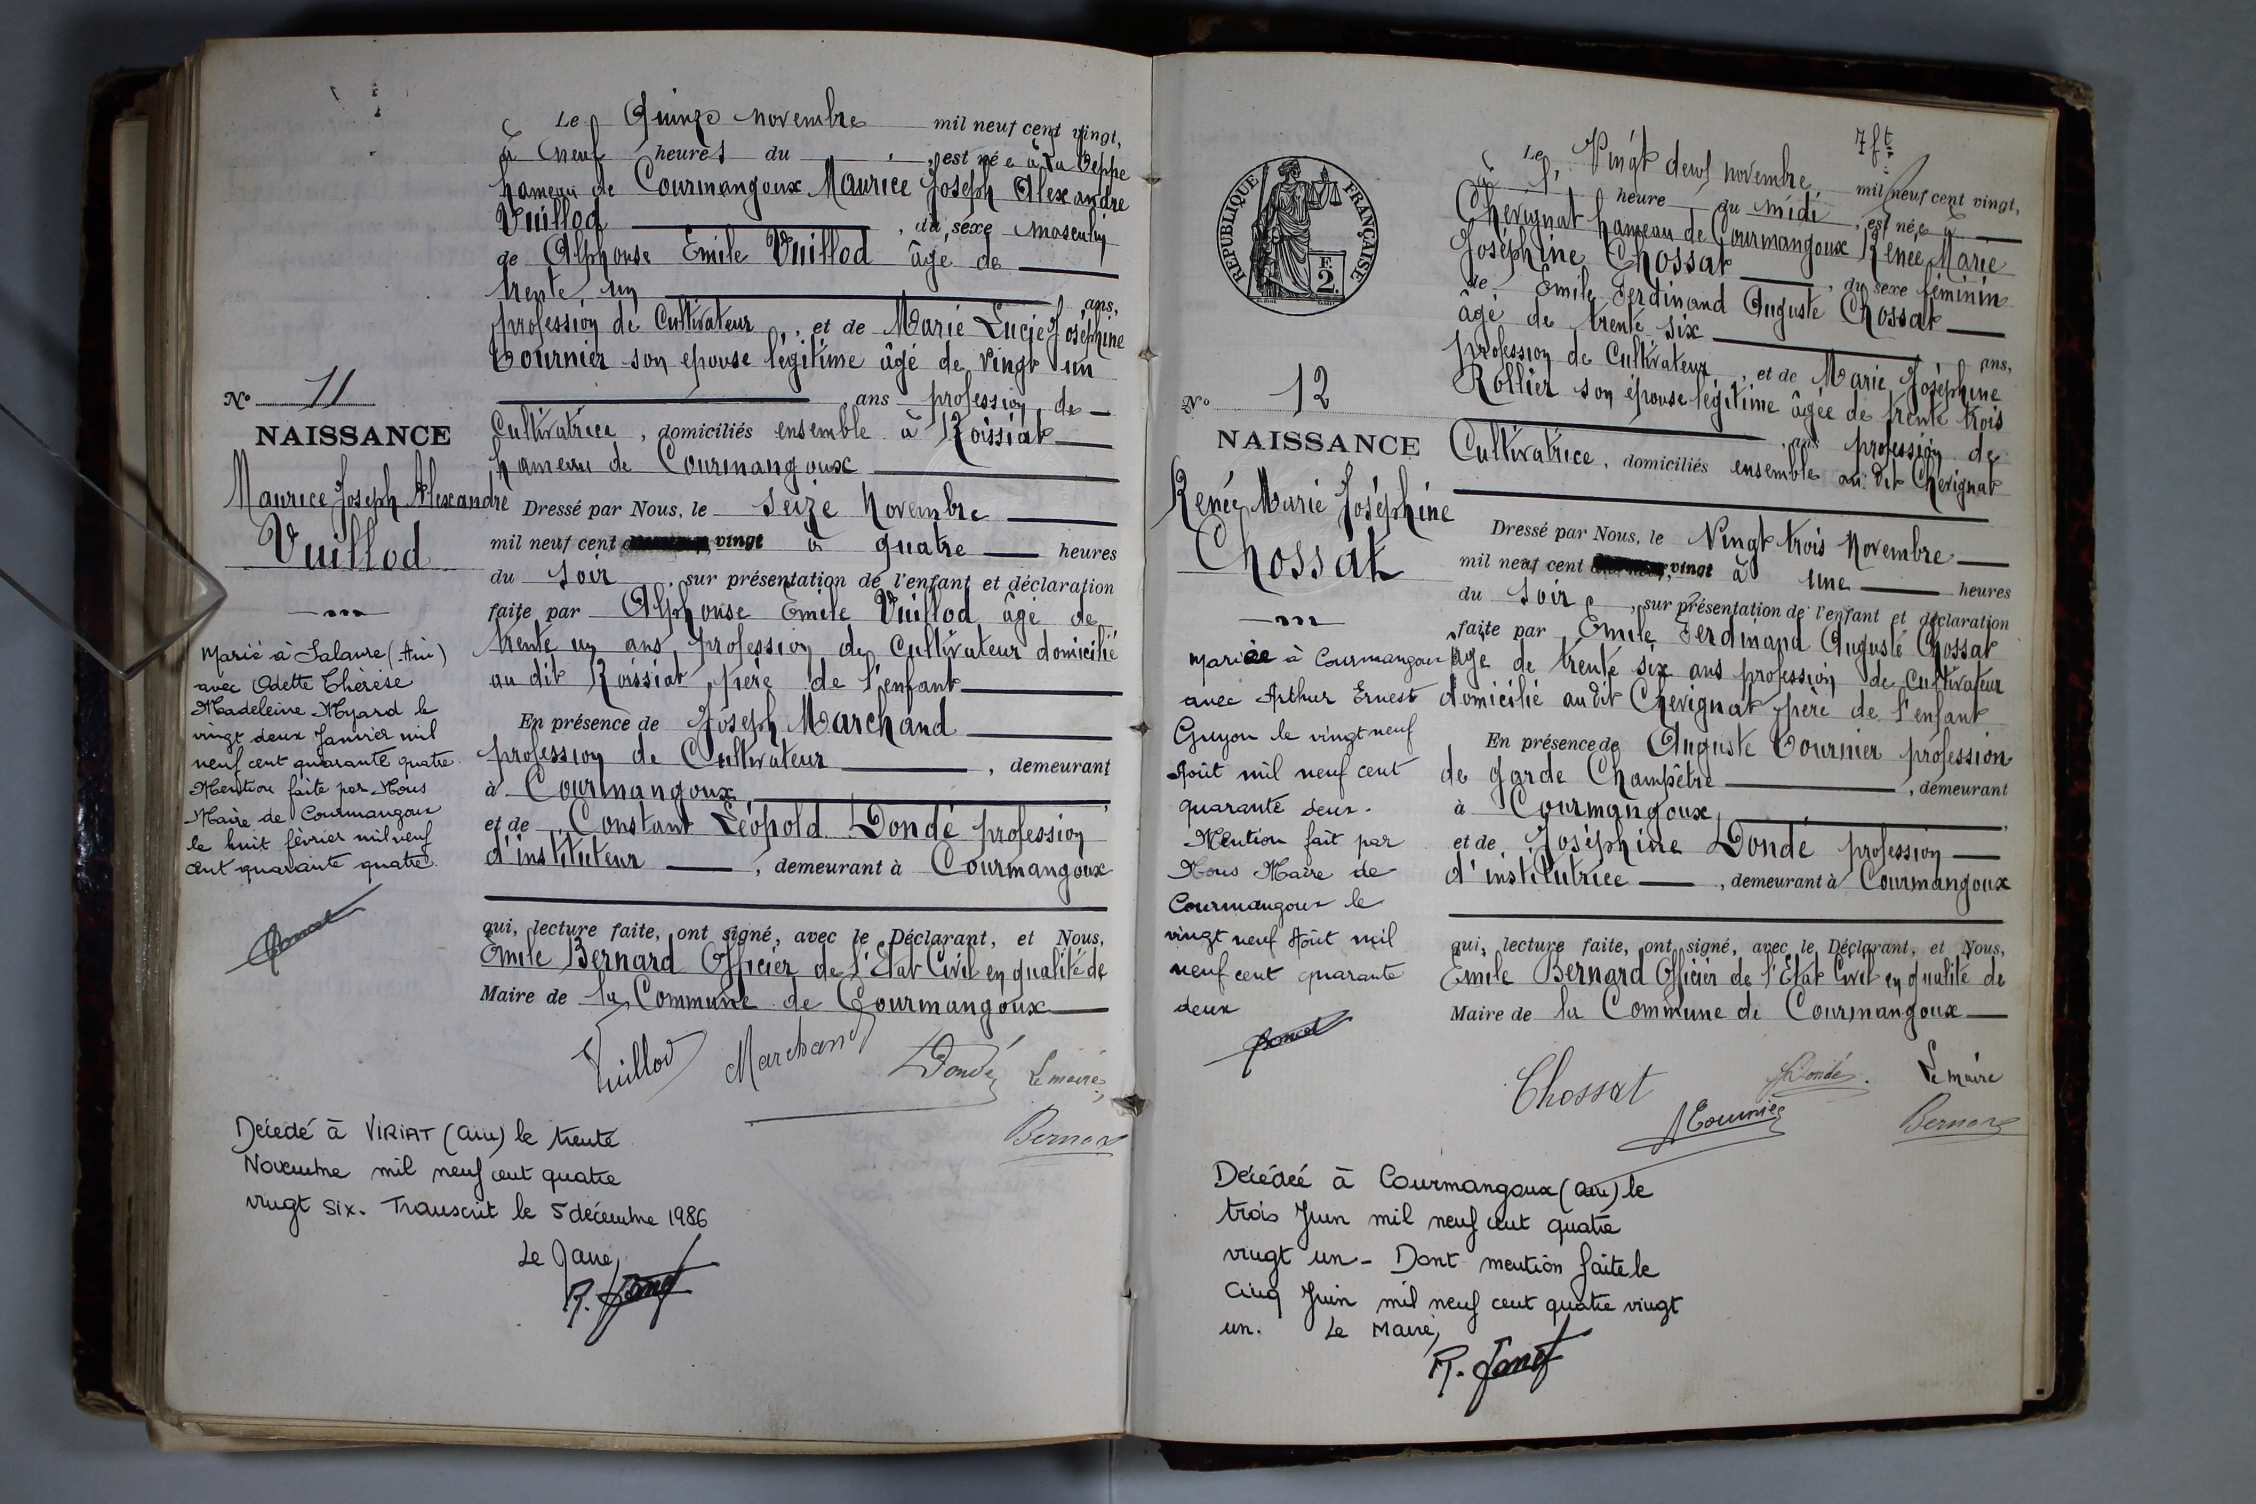 Le Quinze novembre mil neuf cent vingt,
à neuf heures du , est né à La Oeppe
hameau de Courmangoux Maurice Joseph Alexandre
Vuillod , du sexe masculin
de Alphonse Emile Vuillod âgé de
trente un ans,
profession de Cultivateur, et de Marie Lucie Joséphine
Tournier son épouse légitime âgé de vingt un
ans profession de
Cultivatrice, domiciliés ensemble à Roissiat
hameau de Courmangoux
N° 11
NAISSANCE
Maurice Joseph Alexandre
Vuillod
Dressé par Nous, le seize Novembre
mil neuf cent vingt à quatre heures
du soir, sur présentation de l'enfant et déclaration
faite par Alphonse Emile Vuillod âgé de
trente un ans, profession de Cultivateur domicilié
au dit Roissiat, père de l'enfant
En présence de Joseph Marchand
profession de Cultivateur, demeurant
à Courmangoux,
et de Constant Léopold Dondé profession
d'instituteur, demeurant à Courmangoux
qui, lecture faite, ont signé, avec le Déclarant, et Nous,
Emile Bernard Officier de l'Etat Civil en qualité de
Maire de la Commune de Courmangoux
Vuillod Marchand Dondé Le maire,
Bernard
Marié à Salavre (Ain)
avec Odette Thérèse
Madeleine Myard le
vingt deux Janvier mil
neuf cent quarante quatre.
Mention faite par Nous
Maire de Courmangoux
le huit février mil neuf
cent quarante quatre.
Décédé à VIRIAT (Ain) le trente
Novembre mil neuf cent quatre
vingt six. Transcrit le 5 décembre 1986
Le Maire,
7 ft
Le Vingt deux novembre mil neuf cent vingt,
heure du midi, est née à
Chevignat hameau de Courmangoux Renée Marie
Joséphine Chossat, du sexe féminin
de Emile Ferdinand Auguste Chossat
âgé de trente six ans,
profession de Cultivateur, et de Marie Joséphine
Rollier son épouse légitime âgée de trente trois
ans profession de
Cultivatrice, domiciliés ensemble au dit Chevignat
RÉPUBLIQUE FRANÇAISE
F.
2.
N° 12
NAISSANCE
Renée Marie Joséphine
Chossat
Dressé par Nous, le Vingt trois Novembre
mil neuf cent vingt à une heures
du soir, sur présentation de l'enfant et déclaration
faite par Emile Ferdinand Auguste Chossat
âgé de trente six ans profession de Cultivateur
domicilié audit Chevignat père de l'enfant
En présence de Auguste Tournier profession
de garde Champêtre, demeurant
à Courmangoux,
et de Joséphine Dondé profession
d'institutrice, demeurant à Courmangoux
qui, lecture faite, ont signé, avec le Déclarant, et Nous,
Emile Bernard Officier de l'Etat Civil en qualité de
Maire de la Commune de Courmangoux
Chossat Dondé Le maire
Tournier Bernard
Mariée à Courmangoux
avec Arthur Ernest
Guyon le vingt neuf
Août mil neuf cent
quarante deux.
Mention fait par
Nous Maire de
Courmangoux le
vingt neuf Août mil
neuf cent quarante
deux
Décédée à Courmangoux (Ain) le
trois Juin mil neuf cent quatre
vingt un - Dont mention faite le
Cinq Juin mil neuf cent quatre vingt
un. Le Maire,